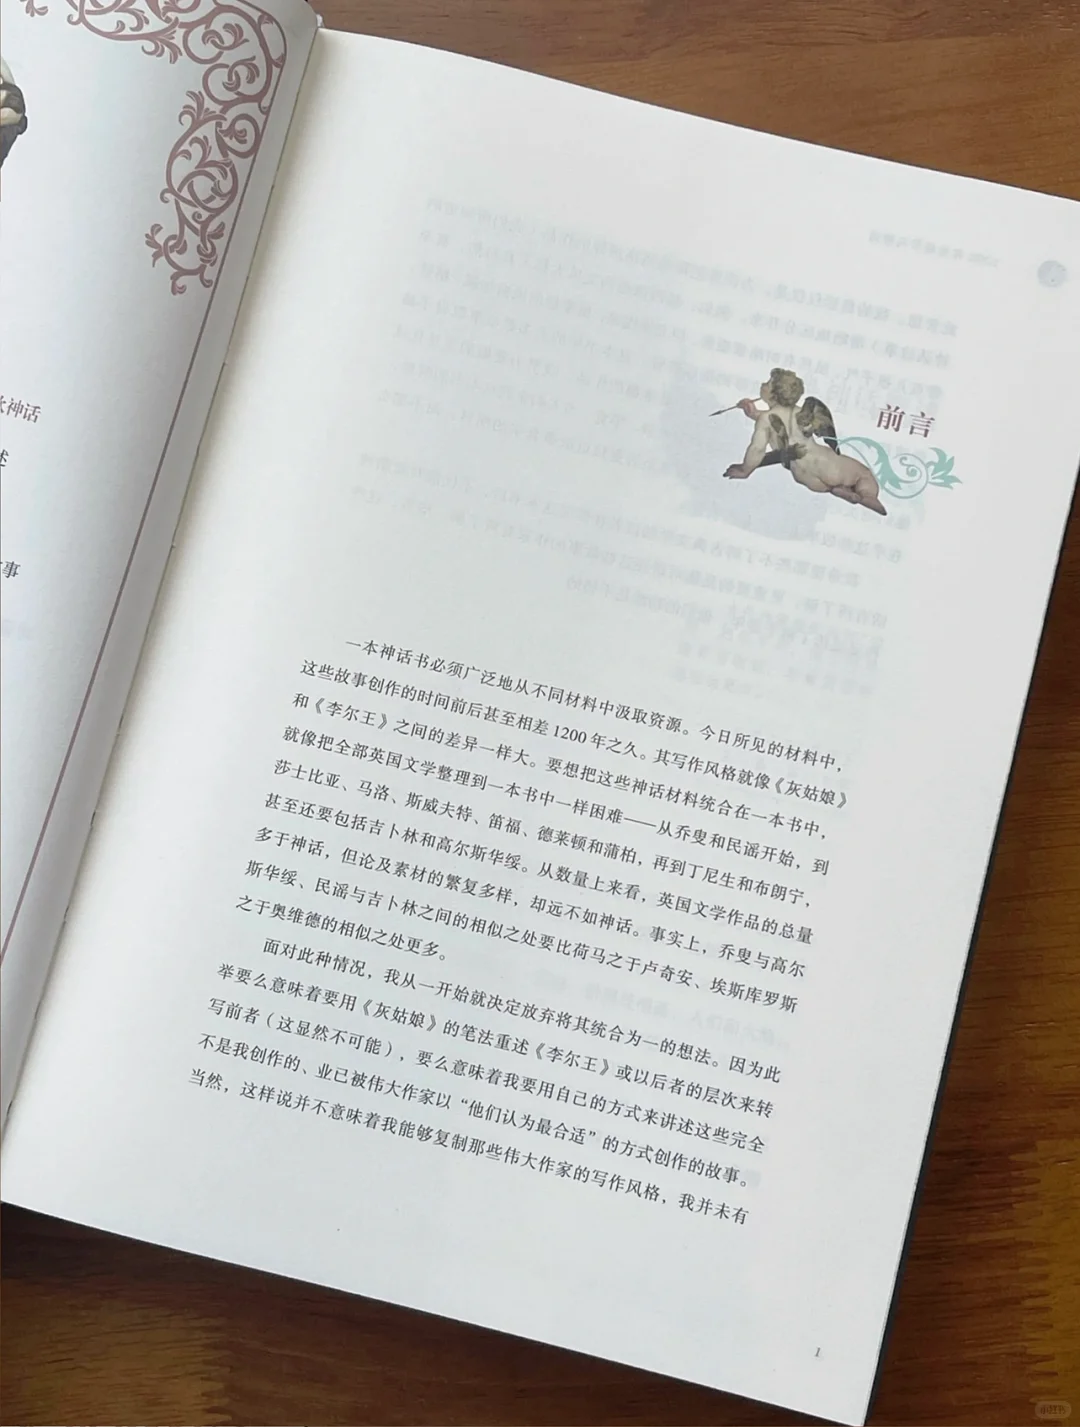 前言
一本神话书必须广泛地从不同材料中汲取资源。今日所见的材料中，
这些故事创作的时间前后甚至相差1200年之久。其写作风格就像《灰姑娘》
和《李尔王》之间的差异一样大。要想把这些神话材料统合在一本书中，
就像把全部英国文学整理到一本书中一样困难——从乔叟和民谣开始，到
莎士比亚、马洛、斯威夫特、笛福、德莱顿和蒲柏，再到丁尼生和布朗宁，
甚至还要包括吉卜林和高尔斯华绥。从数量上来看，英国文学作品的总量
多于神话，但论及素材的繁复多样，却远不如神话。事实上，乔叟与高尔
斯华绥、民谣与吉卜林之间的相似之处要比荷马之于卢奇安、埃斯库罗斯
之于奥维德的相似之处更多。
面对此种情况，我从一开始就决定放弃将其统合为一的想法。因为此
举要么意味着要用《灰姑娘》的笔法重述《李尔王》或以后者的层次来转
写前者（这显然不可能），要么意味着我要用自己的方式来讲述这些完全
不是我创作的、业已被伟大作家以“他们认为最合适”的方式创作的故事。
当然，这样说并不意味着我能够复制那些伟大作家的写作风格，我并未有
1
神话
述
事
小红书